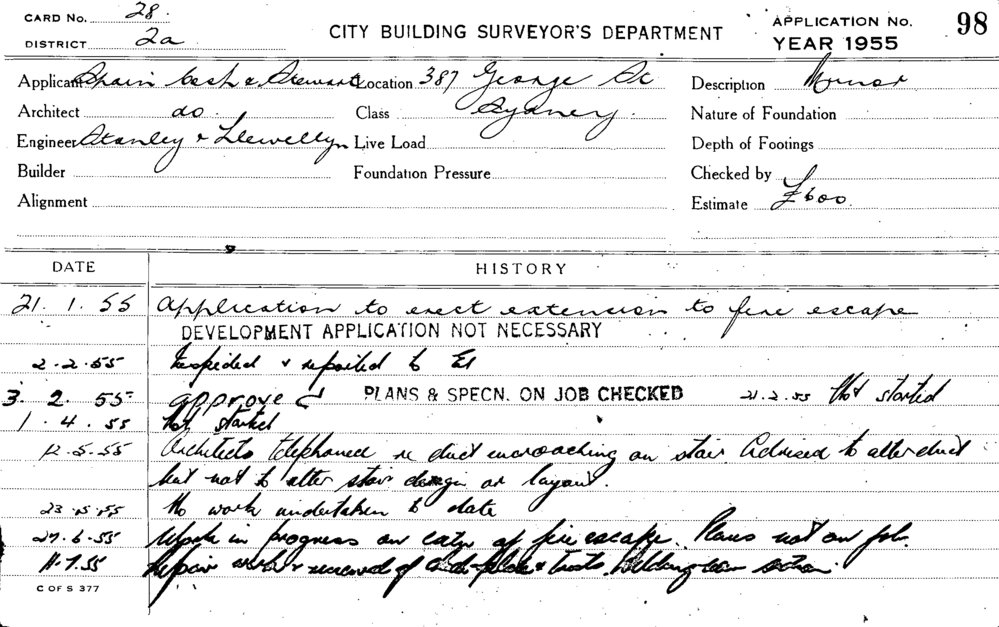 CARD No. 28.
DISTRICT 2a
CITY BUILDING SURVEYOR'S DEPARTMENT
APPLICATION No. 98
YEAR 1955
Applicant Spain Cosh & Stewart Location 387 George St Description Minor
Architect do. Class Sydney Nature of Foundation
Engineer Stanley & Llewellyn Live Load Depth of Footings
Builder Foundation Pressure Checked by
Alignment Estimate £600.
DATE HISTORY
21.1.55 Application to erect extension to fire escape
DEVELOPMENT APPLICATION NOT NECESSARY
2.2.55 Inspected & reported to
3.2.55 approved PLANS & SPECN. ON JOB CHECKED 21.2.55 Not started
1.4.55 Not started
12.5.55 Architects telephoned re duct encroaching on stair Advised to alter duct
but not to alter stair design or layout.
23.5.55 No work undertaken to date
27.6.55 Work in progress on extn of fire escape. Plans not on job.
11.7.55 Repair work & renewal of
C OF S 377